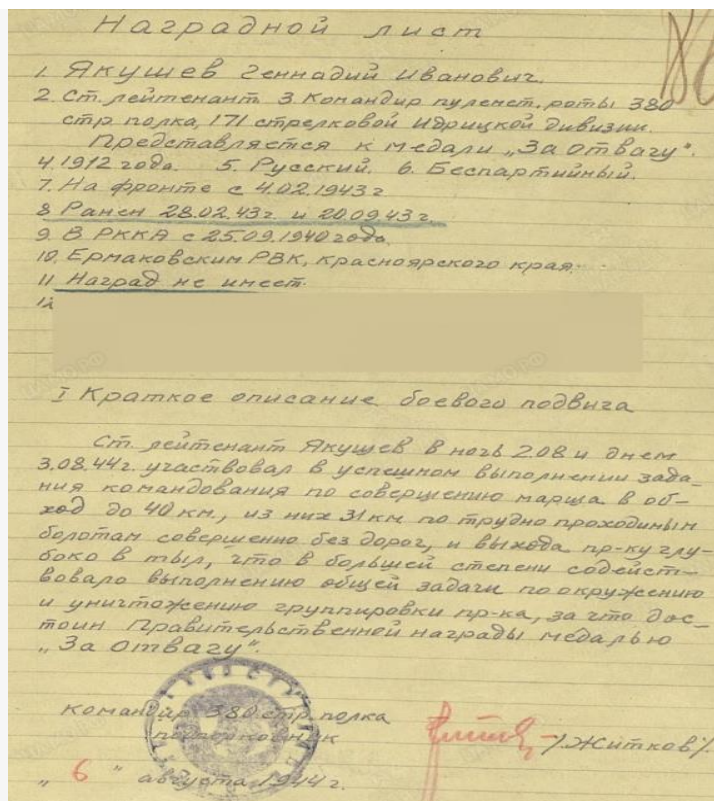 Наградной лист
1. Якушев Геннадий Иванович.
2. Ст. лейтенант 3. Командир пулемет. роты 380
стр полка, 171 стрелковой Идрицкой дивизии.
Представляется к медали „За отвагу".
4. 1912 года. 5. Русский. 6. Беспартийный.
7. На фронте с 4.02.1943 г
8 Ранен 28.02.43г. и 20.09.43г.
9. В РККА с 25.09.1940 года.
10. Ермаковским РВК, Красноярского края.
11 Наград не имеет.
12
I Краткое описание боевого подвига
Ст. лейтенант Якушев в ночь 2.08 и днем
3.08.44г. участвовал в успешном выполнении зада-
ния командования по совершению марша в об-
ход до 40 км., из них 31 км по трудно проходимым
болотам совершенно без дорог, и выхода пр-ку глу-
боко в тыл, что в большей степени содейст-
вовало выполнению общей задачи по окружению
и уничтожению группировки пр-ка, за что дос-
тоин Правительственной награды медалью
„За отвагу".
Командир 380 стр. полка
подполковник /Житков/.
„ 6 " августа 1944 г.